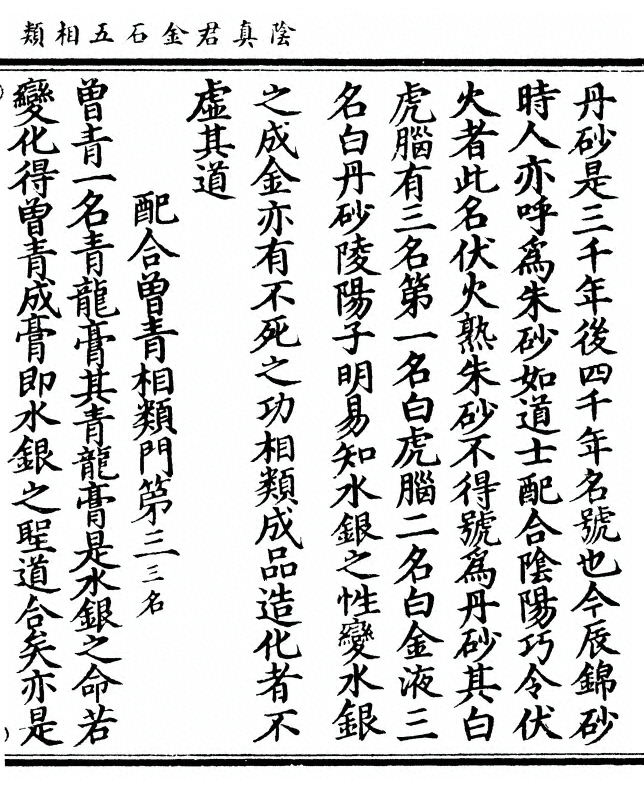 陰真君金石五相類
丹砂是三千年後四千年名號也今辰錦砂
時人亦呼爲朱砂如道士配合陰陽巧令伏
火者此名伏火熟朱砂不得號爲丹砂其白
虎腦有三名第一名白虎腦二名白金液三
名白丹砂陵陽子明易知水銀之性變水銀
之成金亦有不死之功相類成品造化者不
虛其道
配合曾青相類門第三三名
曾青一名青龍膏其青龍膏是水銀之命若
變化得曾青成膏即水銀之聖道合矣亦是